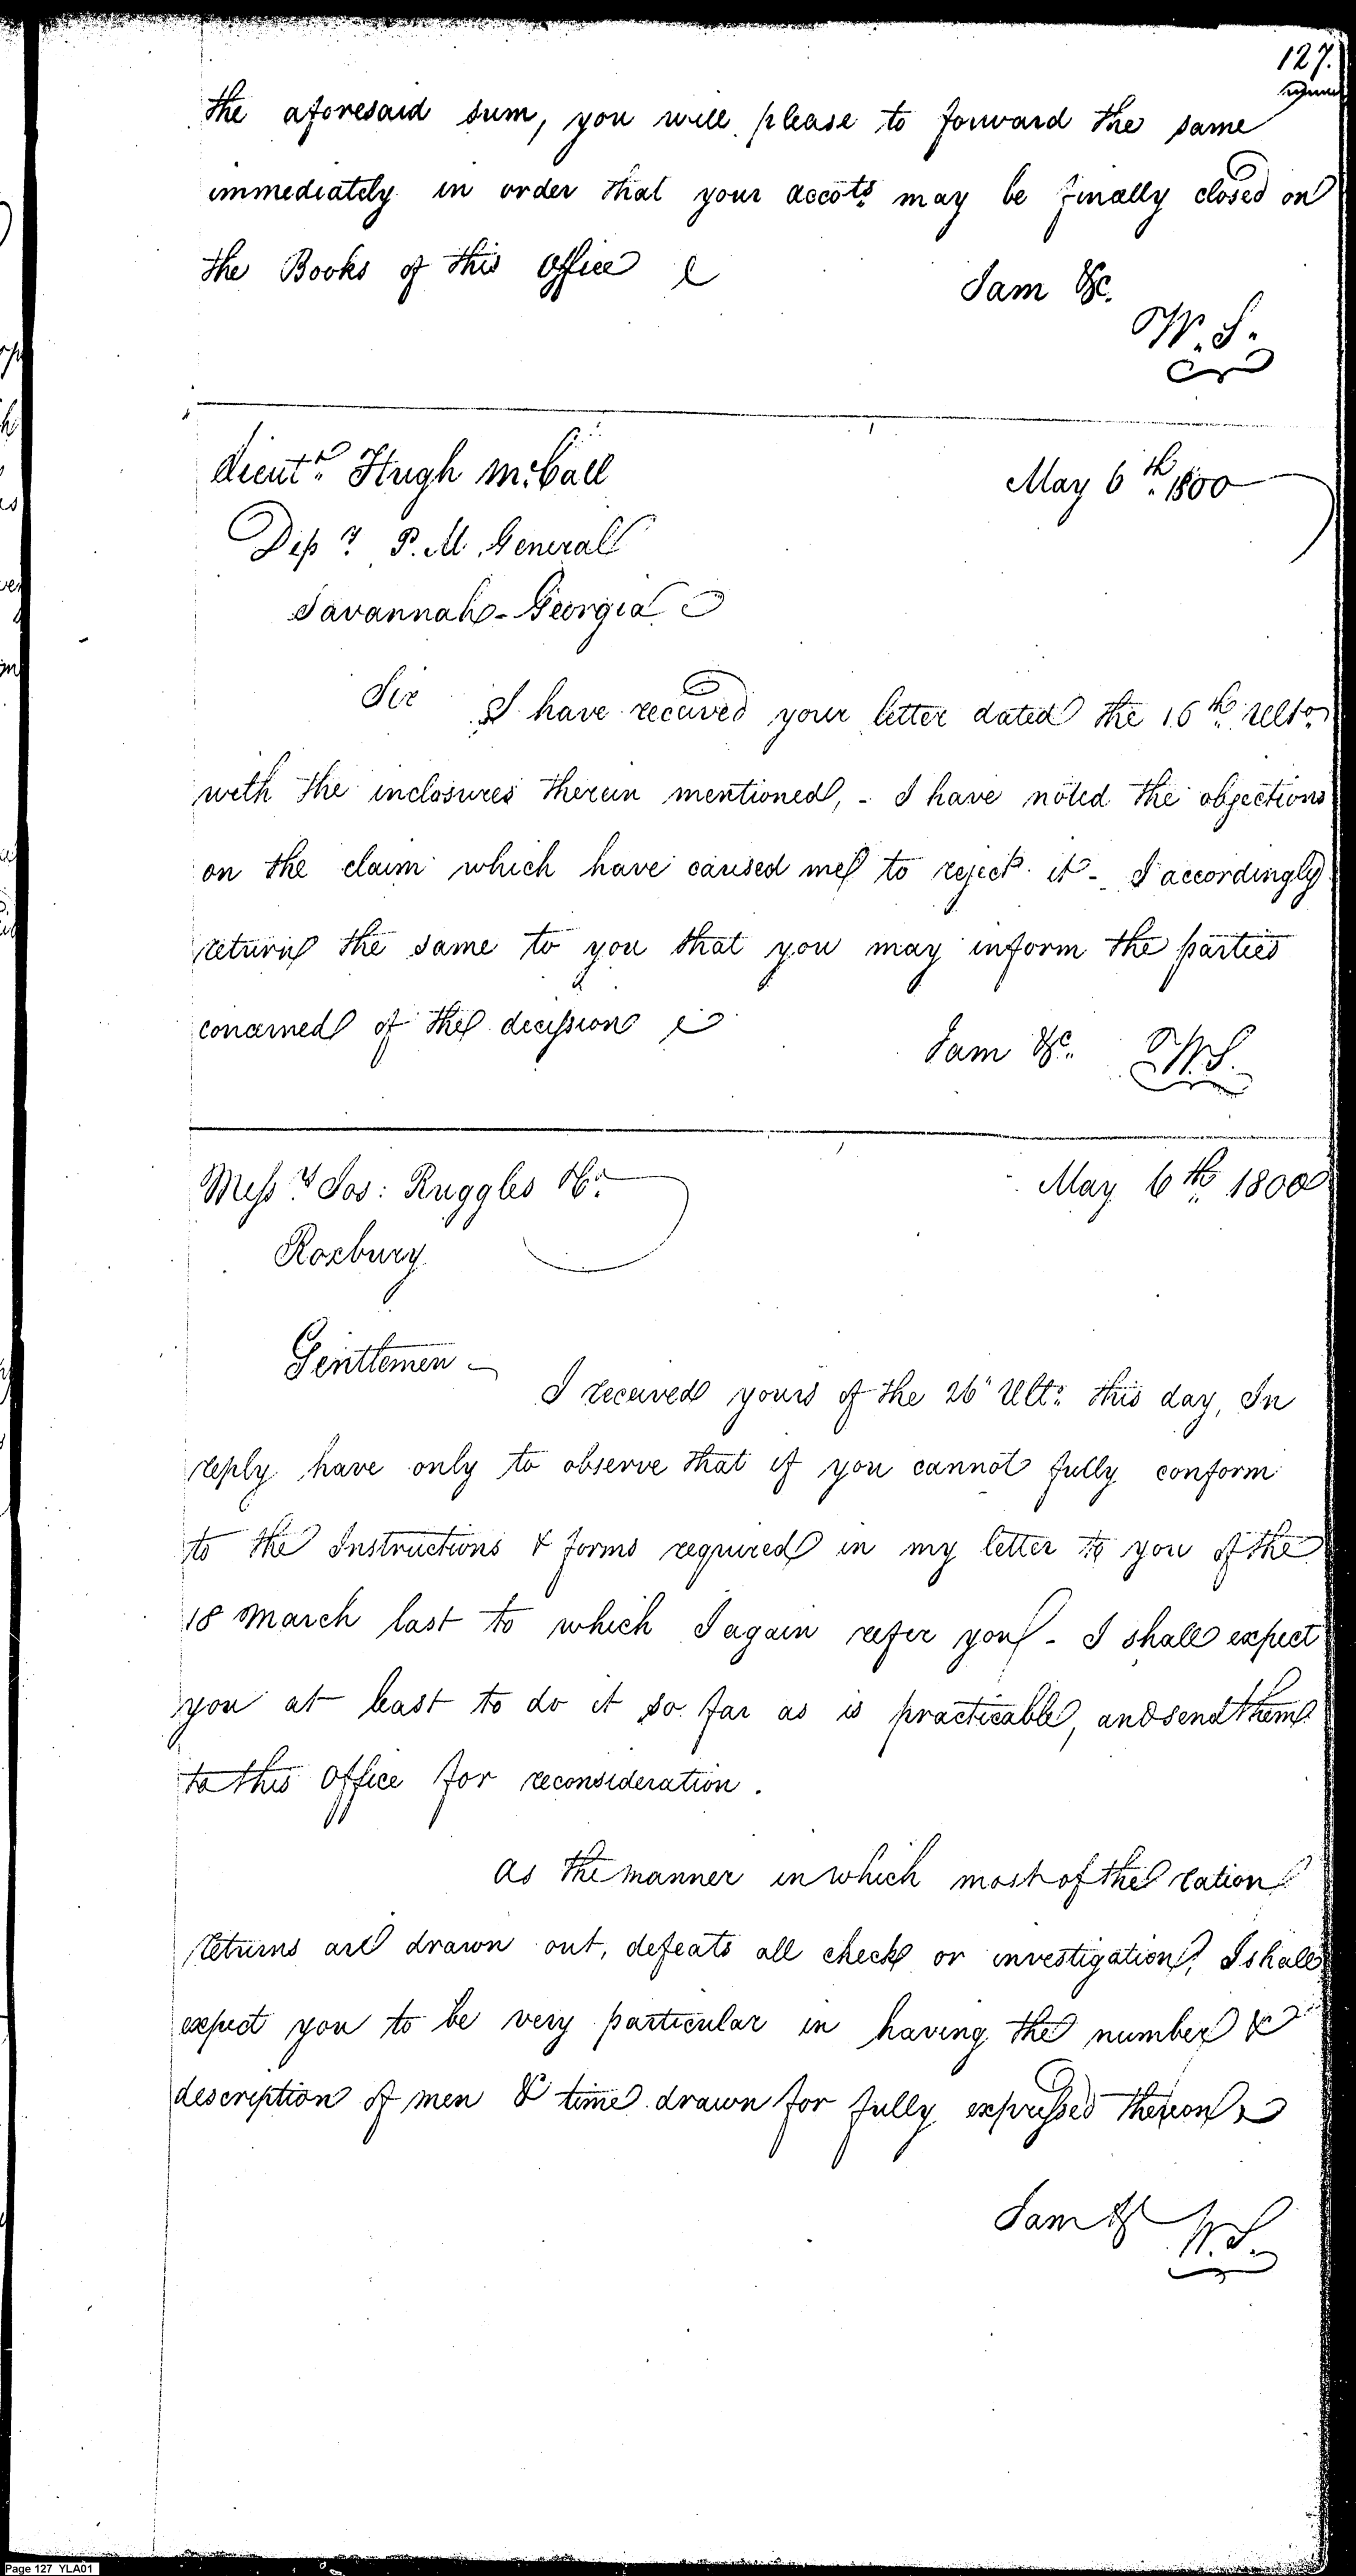 127.
the aforesaid sum, you will please to forward the same
immediately in order that your accots. may be finally closed on
the Books of this office
I am &c.
W. S.
Lieutt. Hugh McCall
May 6th. 1800
Depy. P. M. General
Savannah - Georgia
Sir I have received your letter dated the 16th. Ulto.
with the inclosures therein mentioned, - I have noted the objections
on the claim which have caused me to reject it - I accordingly
return the same to you that you may inform the parties
concerned of the decission
I am &c. W. S.
Messrs. Jos: Ruggles &c.
May 6th. 1800
Roxbury
Gentlemen -
I received yours of the 26" Ulto. this day, In
reply have only to observe that if you cannot fully conform
to the Instructions & forms required in my letter to you of the
18 March last to which I again refer you - I shall expect
you at least to do it so far as is practicable, and send them
to this office for reconsideration.
As the manner in which most of the ration
returns are drawn out, defeats all check or investigation, I shall
expect you to be very particular in having the number &
description of men & time drawn for fully expressed thereon
I am &c
W. S.
Page 127 YLA01